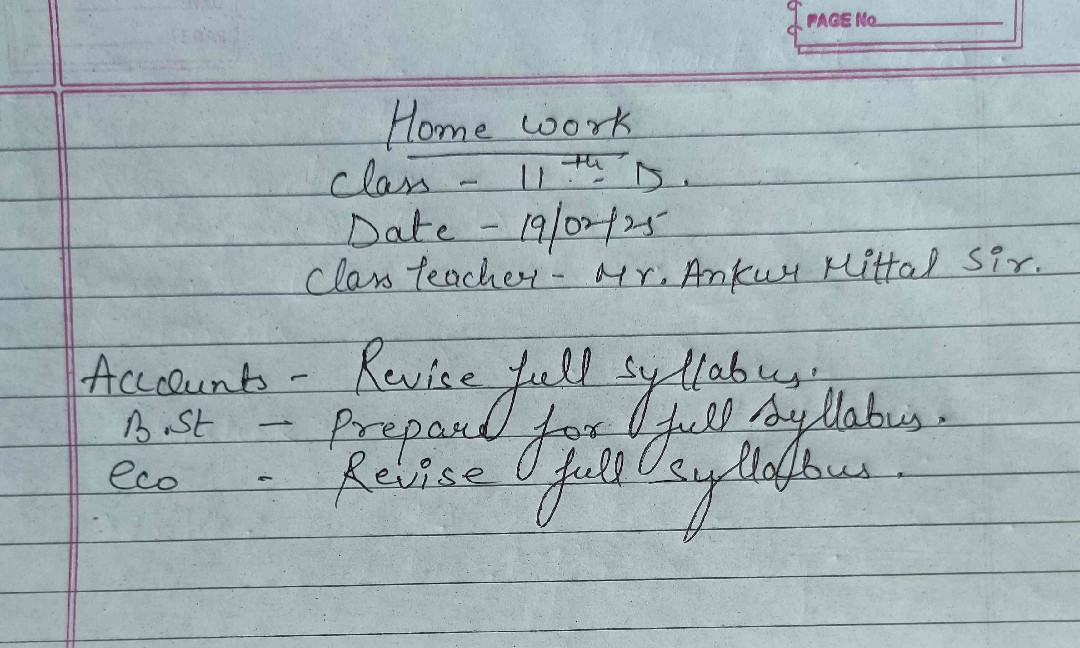 PAGE No
Home work
Class - 11th D.
Date - 19/02/25
Class teacher - Mr. Ankur Mittal Sir.
Accounts - Revise full syllabus.
B.St - Prepared for full syllabus.
eco - Revise full syllabus.